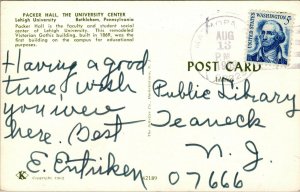 PACKER HALL, THE UNIVERSITY CENTER
Lehigh University Bethlehem, Pennsylvania
Packer Hall is the faculty and student social
center of Lehigh University. This remodeled
Victorian Gothic building, built in 1869, was the
first building on the campus for educational
purposes.
AUG
13
PM
5¢
POST CARD
Having a good
time wish
you were
here. Best
E. Entriken
Public Library
Teaneck
N. J.
07666
K